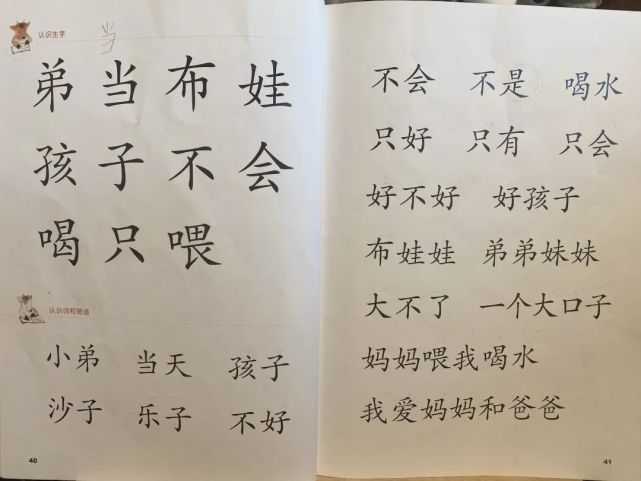 认识生字
当
弟 当 布 娃
孩 子 不 会
喝 只 喂
认识词和短语
小弟 当天 孩子
沙子 乐子 不好
40
不会 不是 喝水
只好 只有 只会
好不好 好孩子
布娃娃 弟弟妹妹
大不了 一个大口子
妈妈喂我喝水
我爱妈妈和爸爸
41